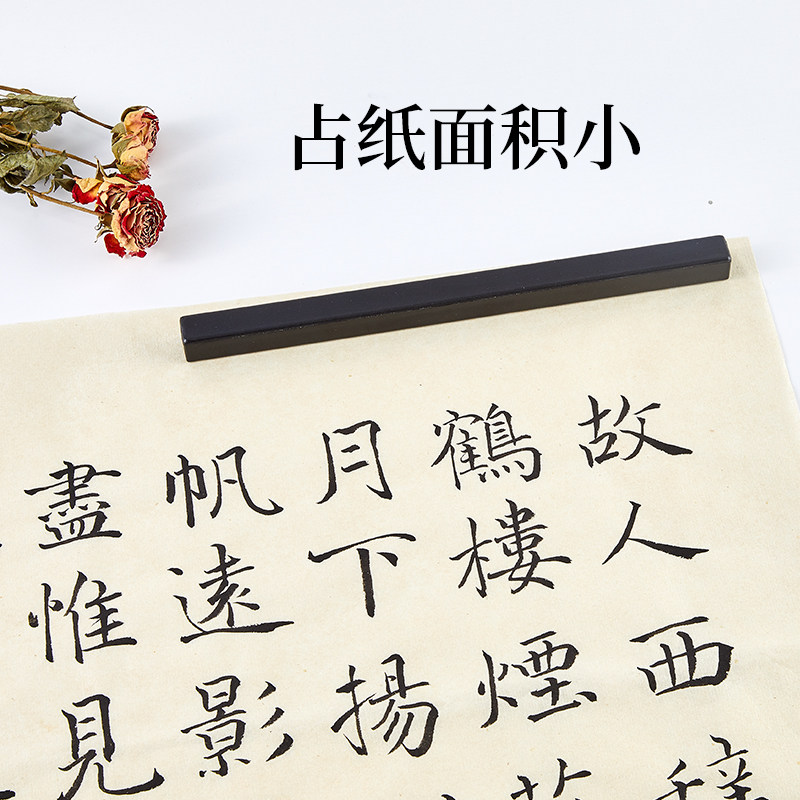 占纸面积小
故人西
鶴樓煙
月下揚
帆遠影
盡惟見